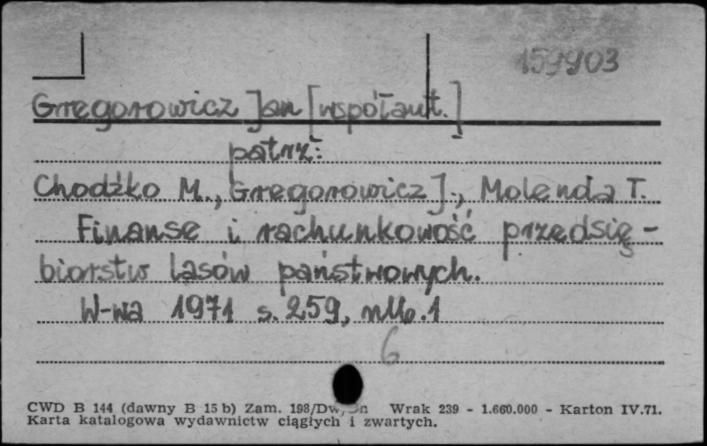 159903
Grregorowicz Jan [współaut.]
patrz:
Chodźko M., Gregorowicz J., Molenda T.
Finanse i rachunkowość przedsię-
biorstw lasów państwowych.
W-wa 1971 s. 259, nlb. 1
6
CWD B 144 (dawny B 15 b) Zam. 198/Dw, Wrak 239 - 1.660.000 - Karton IV.71.
Karta katalogowa wydawnictw ciągłych i zwartych.